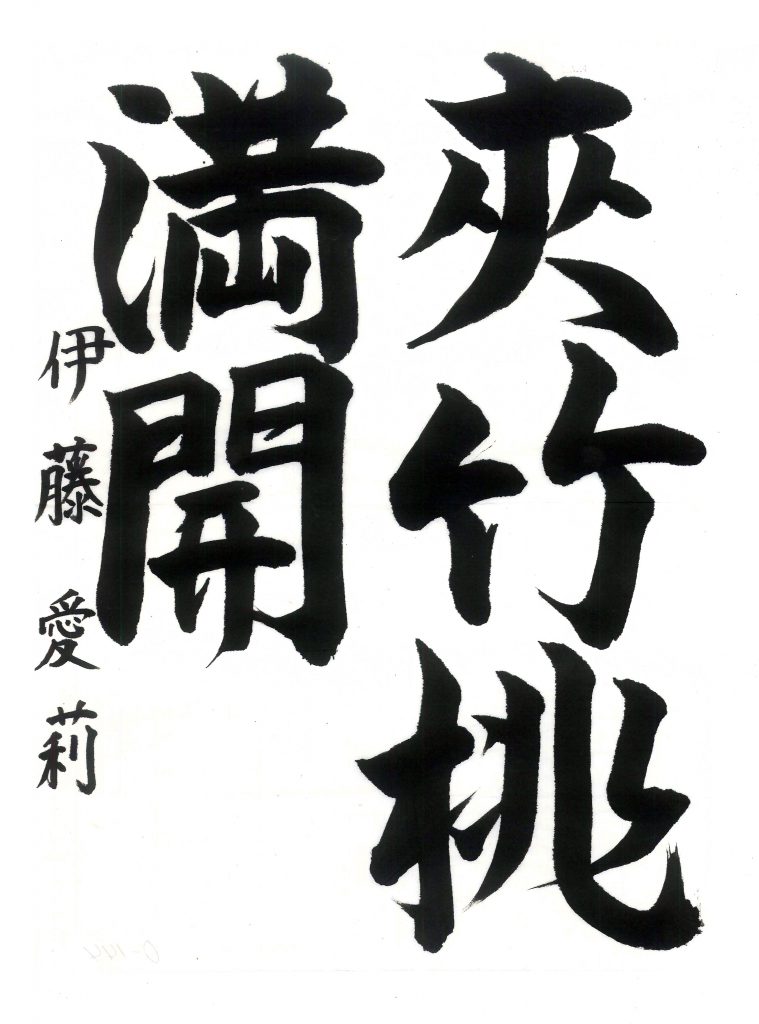 夾竹桃
満開
伊藤愛莉